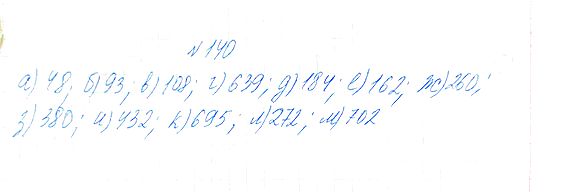 № 140
а) 48; б) 93; в) 108; г) 639; д) 184; е) 162; ж) 260;
з) 380; и) 432; к) 695; л) 272; м) 702